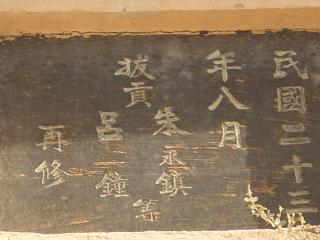 民國二十三
年八月
拔貢朱永鎮
呂鐘等
再修